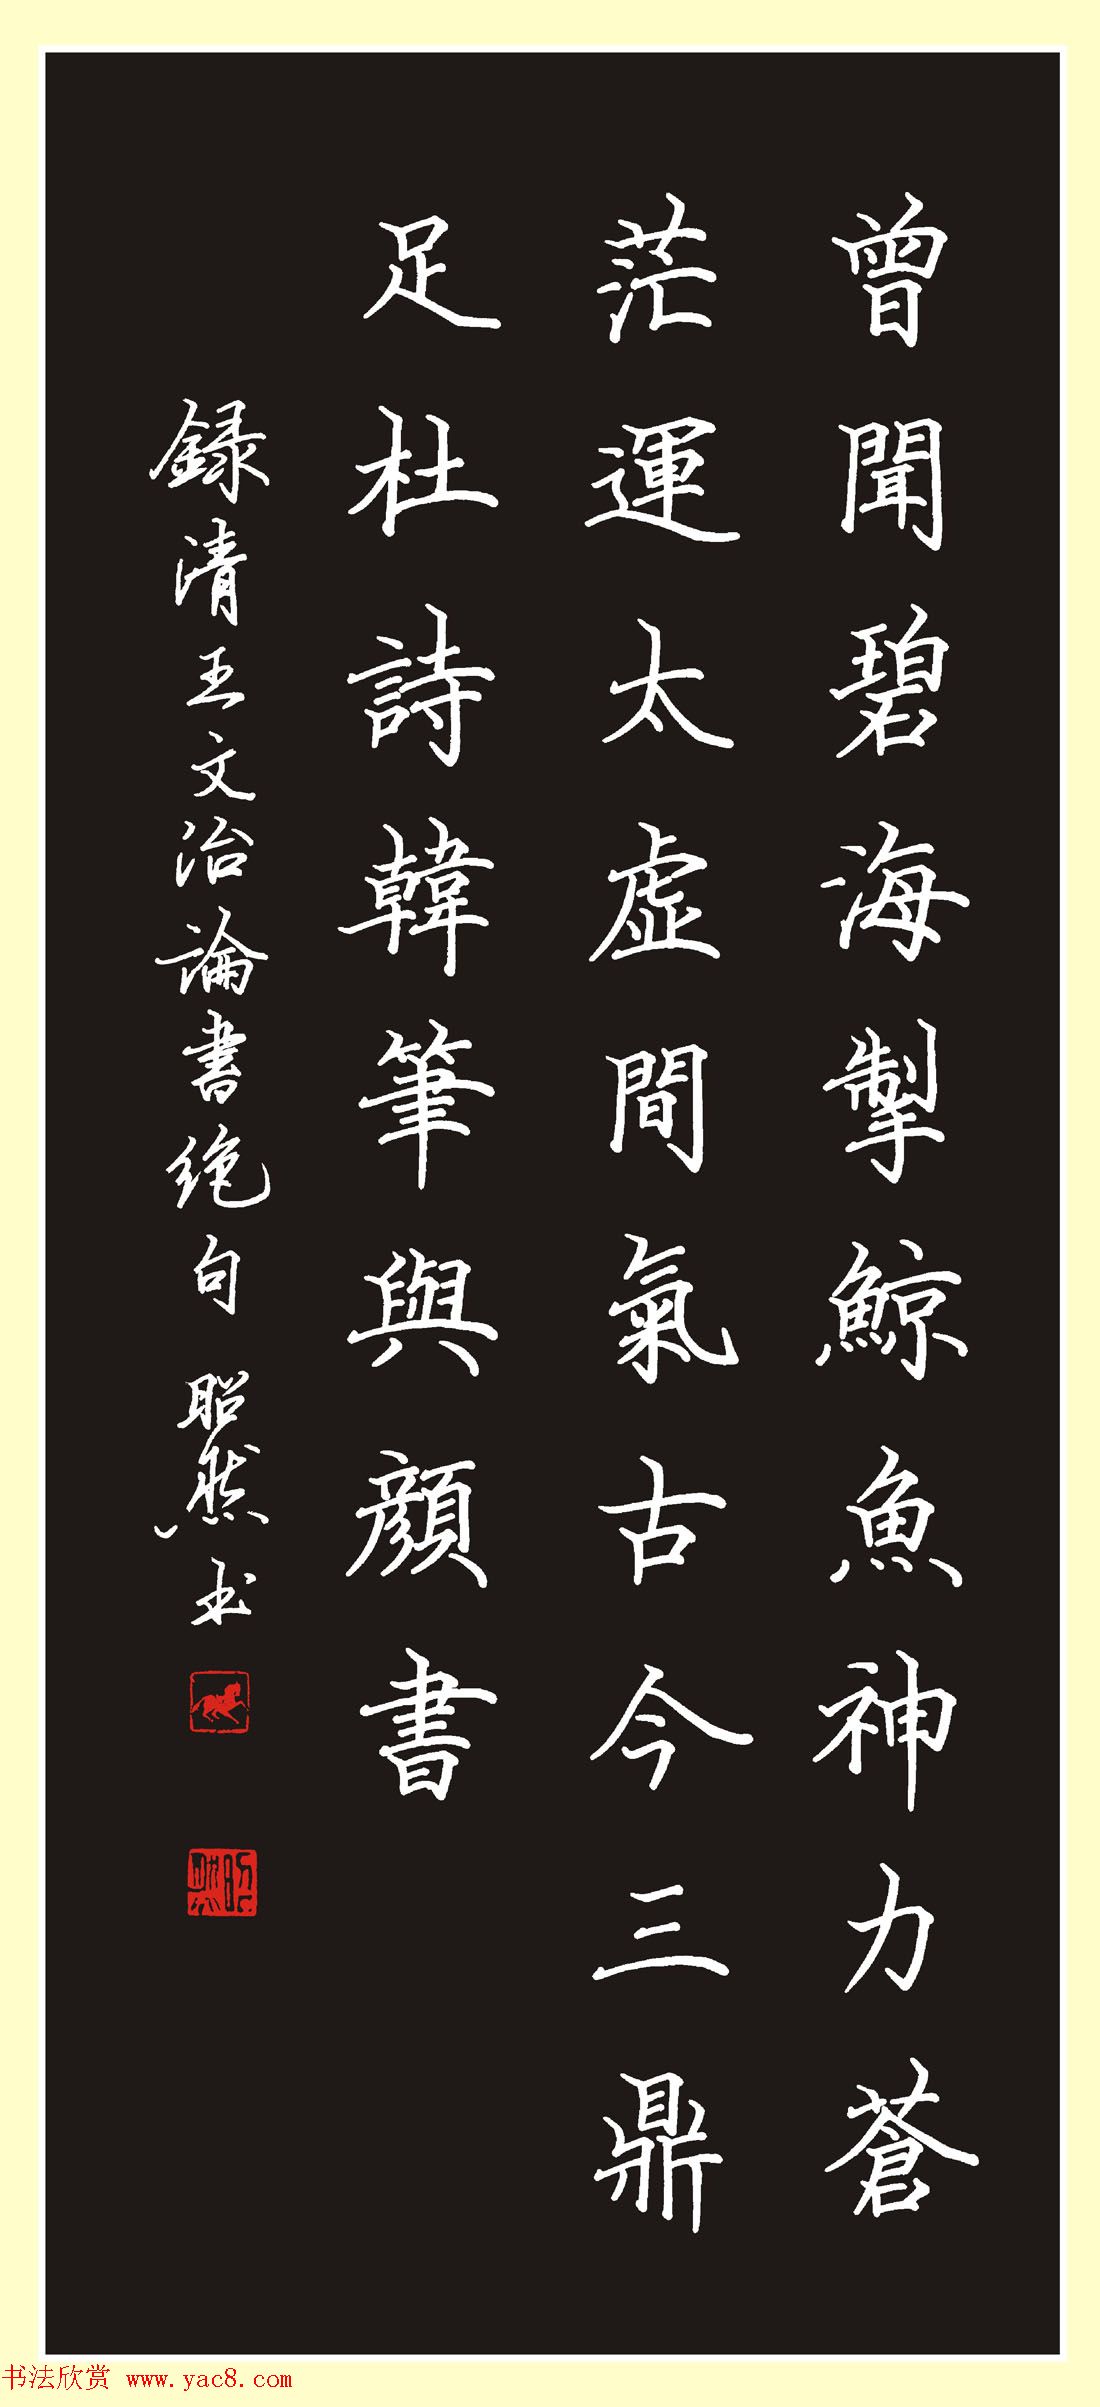 曾聞碧海掣鯨魚神力蒼
茫運太虛間氣古今三鼎
足杜詩韓筆與顏書
録清王文治論書絕句 昭然书
昭然
书法欣赏 www.yac8.com